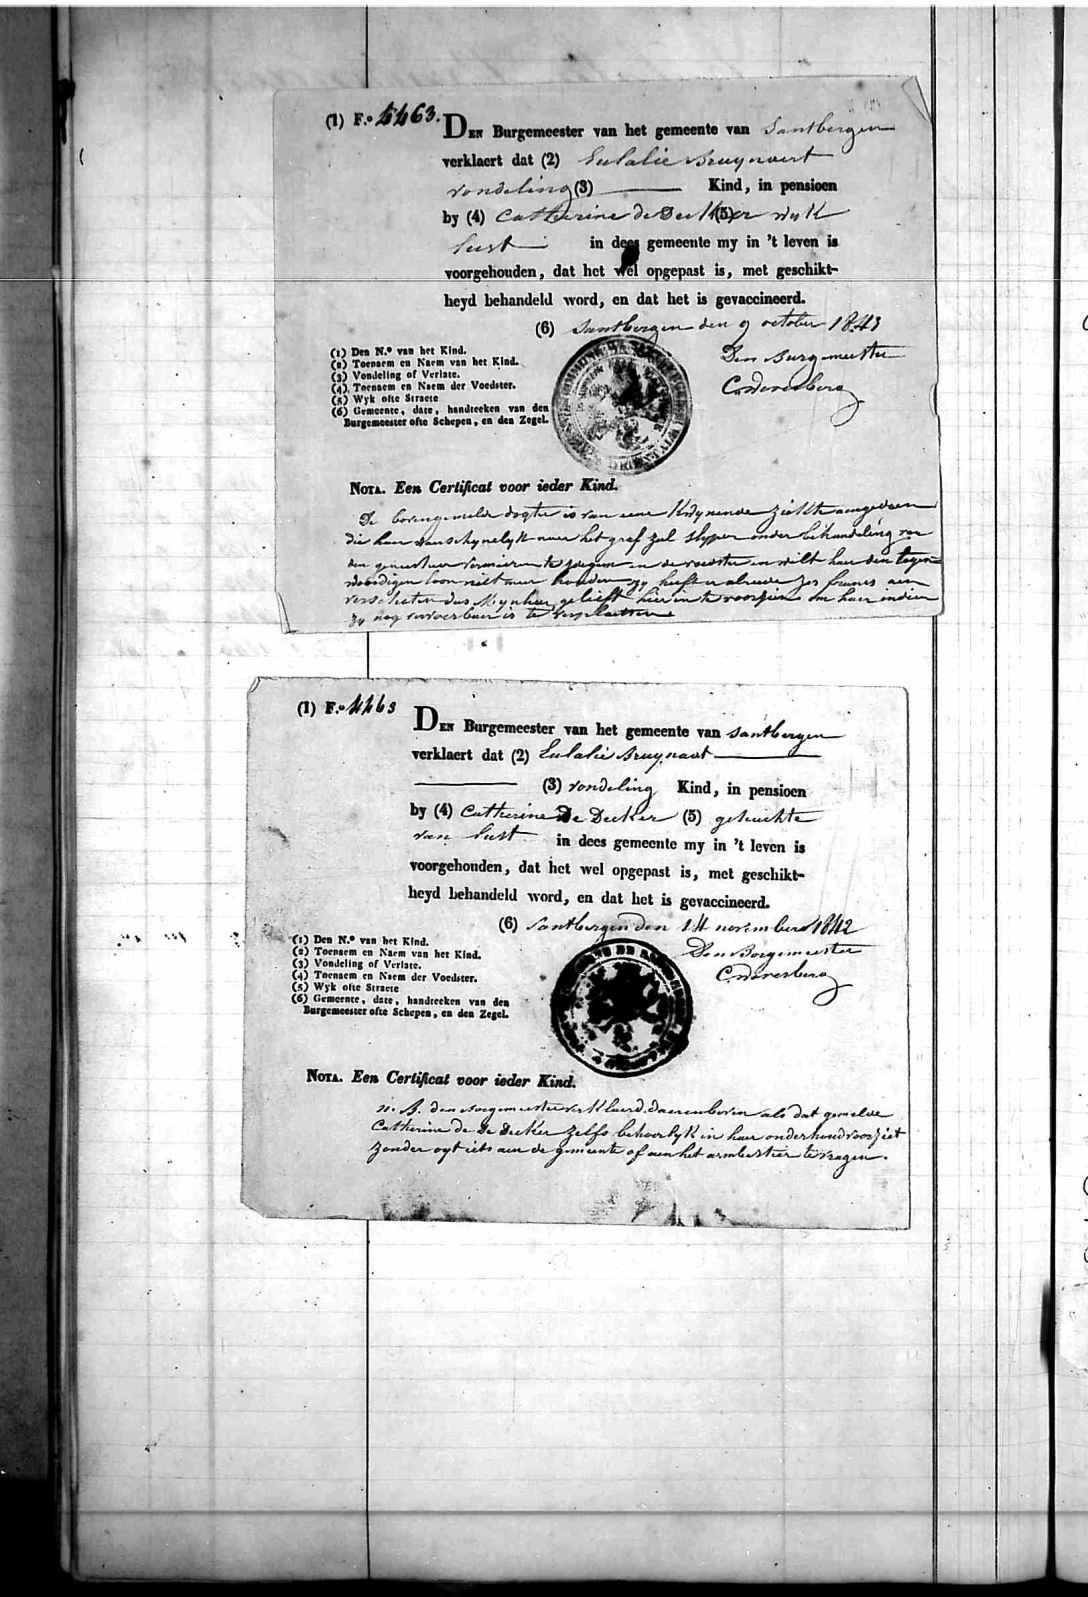 (1) F.º 4463. DEN Burgemeester van het gemeente van Santbergen
verklaert dat (2) Eulalie Bruynaert
vondeling (3) Kind, in pensioen
by (4) Catherine de Decker (5) wyk
Lust in dees gemeente my in 't leven is
voorgehouden, dat het wel opgepast is, met geschikt-
heyd behandeld word, en dat het is gevaccineerd.
(6) Santbergen den 9 october 1843
Den Burgemeester
(1) Den N.º van het Kind.
(2) Toenaem en Naem van het Kind.
(3) Vondeling of Verlate.
(4) Toenaem en Naem der Voedster.
(5) Wyk ofte Straete
(6) Gemeente, date, handteeken van den
Burgemeester ofte Schepen, en den Zegel.
NOTA. Een Certificat voor ieder Kind.
De bovengemelde dogter is van eene kwynende ziekte aengedaen
die haer waerschynelyk naer het graf zal slypen onder behandeling van
den geneesheer te en de voedster en wilt haer den tegen-
woordigen loon niet meer houden zy heeft er alreede zes francs aen
verschoten dus Mynheer gelieft hier in te voorzien om haer indien
zy nog vervoerbaer is te verplaetsen
(1) F.º 4463 DEN Burgemeester van het gemeente van Santbergen
verklaert dat (2) Eulalie Bruynaert
(3) vondeling Kind, in pensioen
by (4) Catherine De Decker (5) gehuchte
van Lust in dees gemeente my in 't leven is
voorgehouden, dat het wel opgepast is, met geschikt-
heyd behandeld word, en dat het is gevaccineerd.
(6) Santbergen den 14 november 1842
Den Borgemeester
(1) Den N.º van het Kind.
(2) Toenaem en Naem van het Kind.
(3) Vondeling of Verlate.
(4) Toenaem en Naem der Voedster.
(5) Wyk ofte Straete
(6) Gemeente, date, handteeken van den
Burgemeester ofte Schepen, en den Zegel.
NOTA. Een Certificat voor ieder Kind.
n. B. den Borgemeester verklaerd daerenboven als dat gemelde
Catherine de Decker zelfs behoorlyk in haer onderhoud voorziet
zonder oyt iets aen de gemeente of aen het armbestier te vragen.